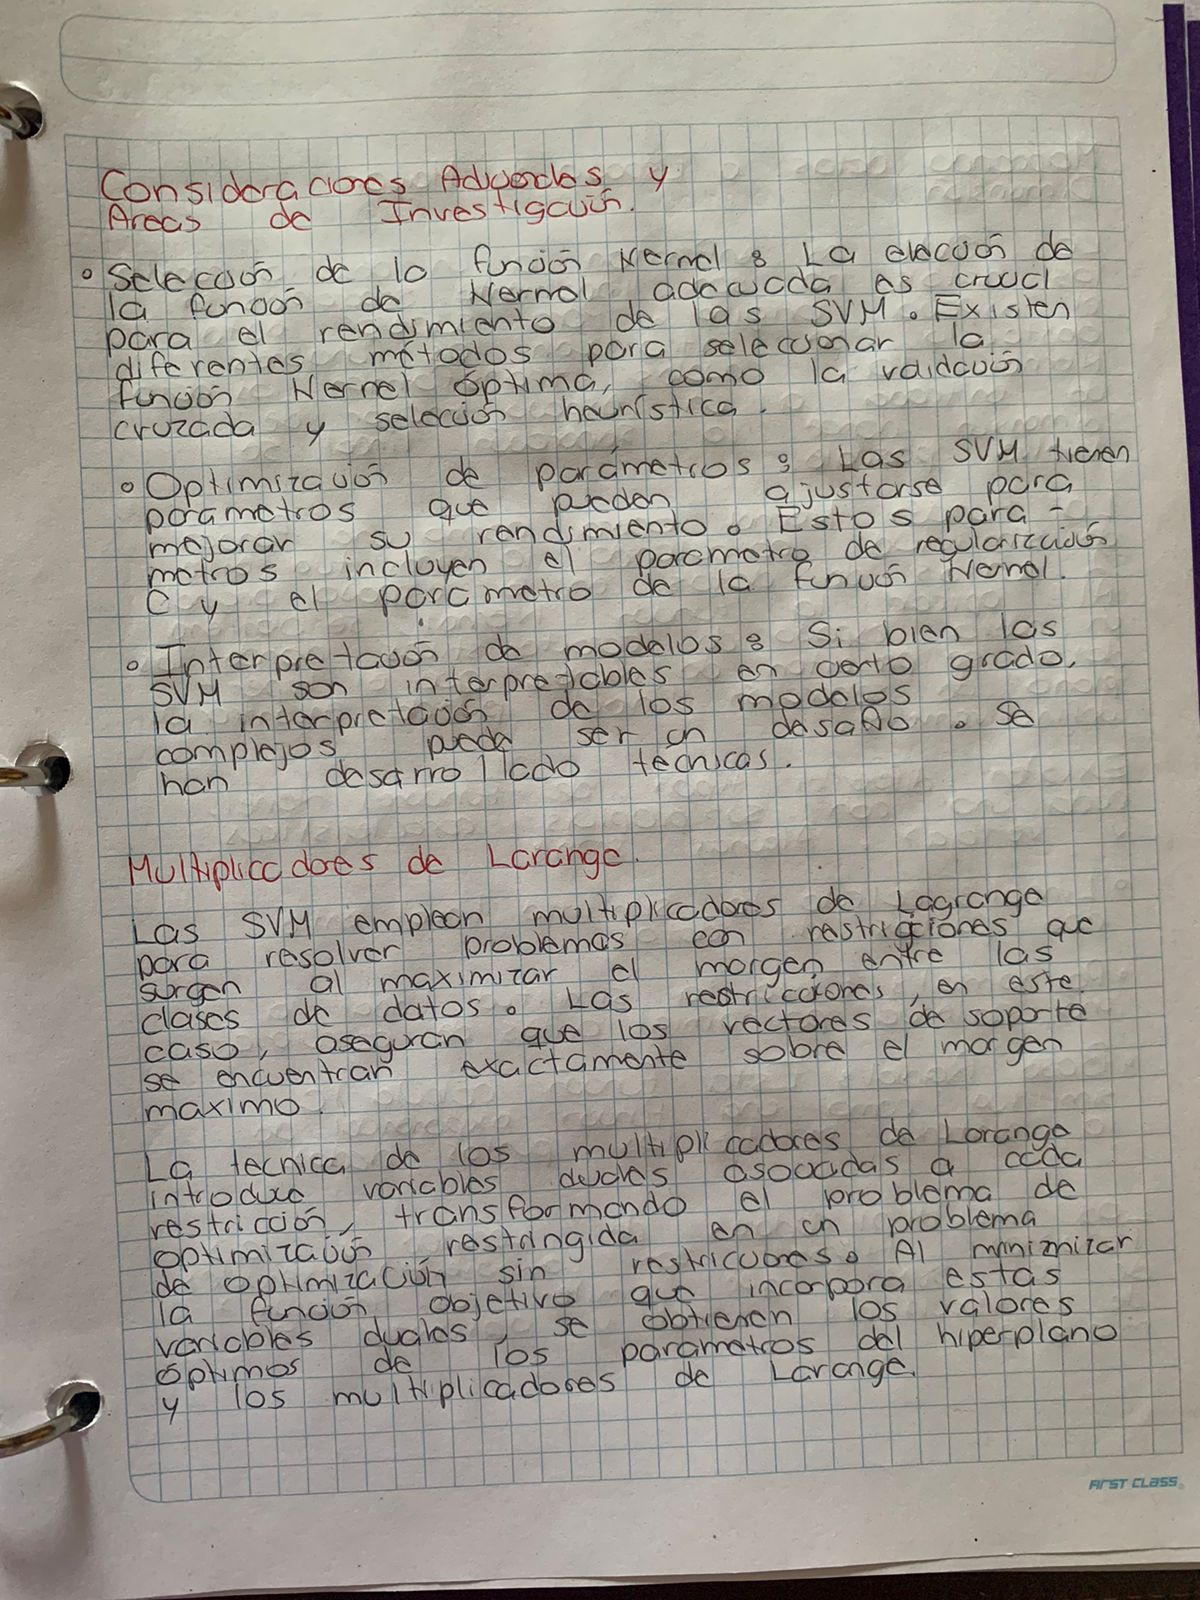 Consideraciones Aduerdas y
Areas de Investigación.
Selección de la función Kernel : La elección de
la función de Kernel adecuada es crucial
para el rendimiento de las SVM. Existen
diferentes métodos para seleccionar la
función Kernel óptima, como la validación
cruzada y selección heurística.
Optimización de parámetros : Las SVM tienen
parametros que pueden ajustarse para
mejorar su rendimiento. Estos para-
metros incluyen el parametro de regularización
C y el parametro de la función Kernel.
Interpretación de modelos : Si bien las
SVM son interpretables en cierto grado,
la interpretación de los modelos
complejos puede ser un desafío. Se
han desarrollado técnicas.
Multiplicadores de Larange.
Las SVM emplean multiplicadores de Lagrange
para resolver problemas con restricciones que
surgen al maximizar el margen entre las
clases de datos. Las restricciones, en este
caso, aseguran que los vectores de soporte
se encuentran exactamente sobre el margen
maximo.
La tecnica de los multiplicadores de Larange
introduce variables duales asociadas a cada
restricción, transformando el problema de
optimización restringida en un problema
de optimización sin restricciones. Al minimizar
la función objetivo que incorpora estas
variables duales, se obtienen los valores
óptimos de los parametros del hiperplano
y los multiplicadores de Larange.
FIRST CLASS